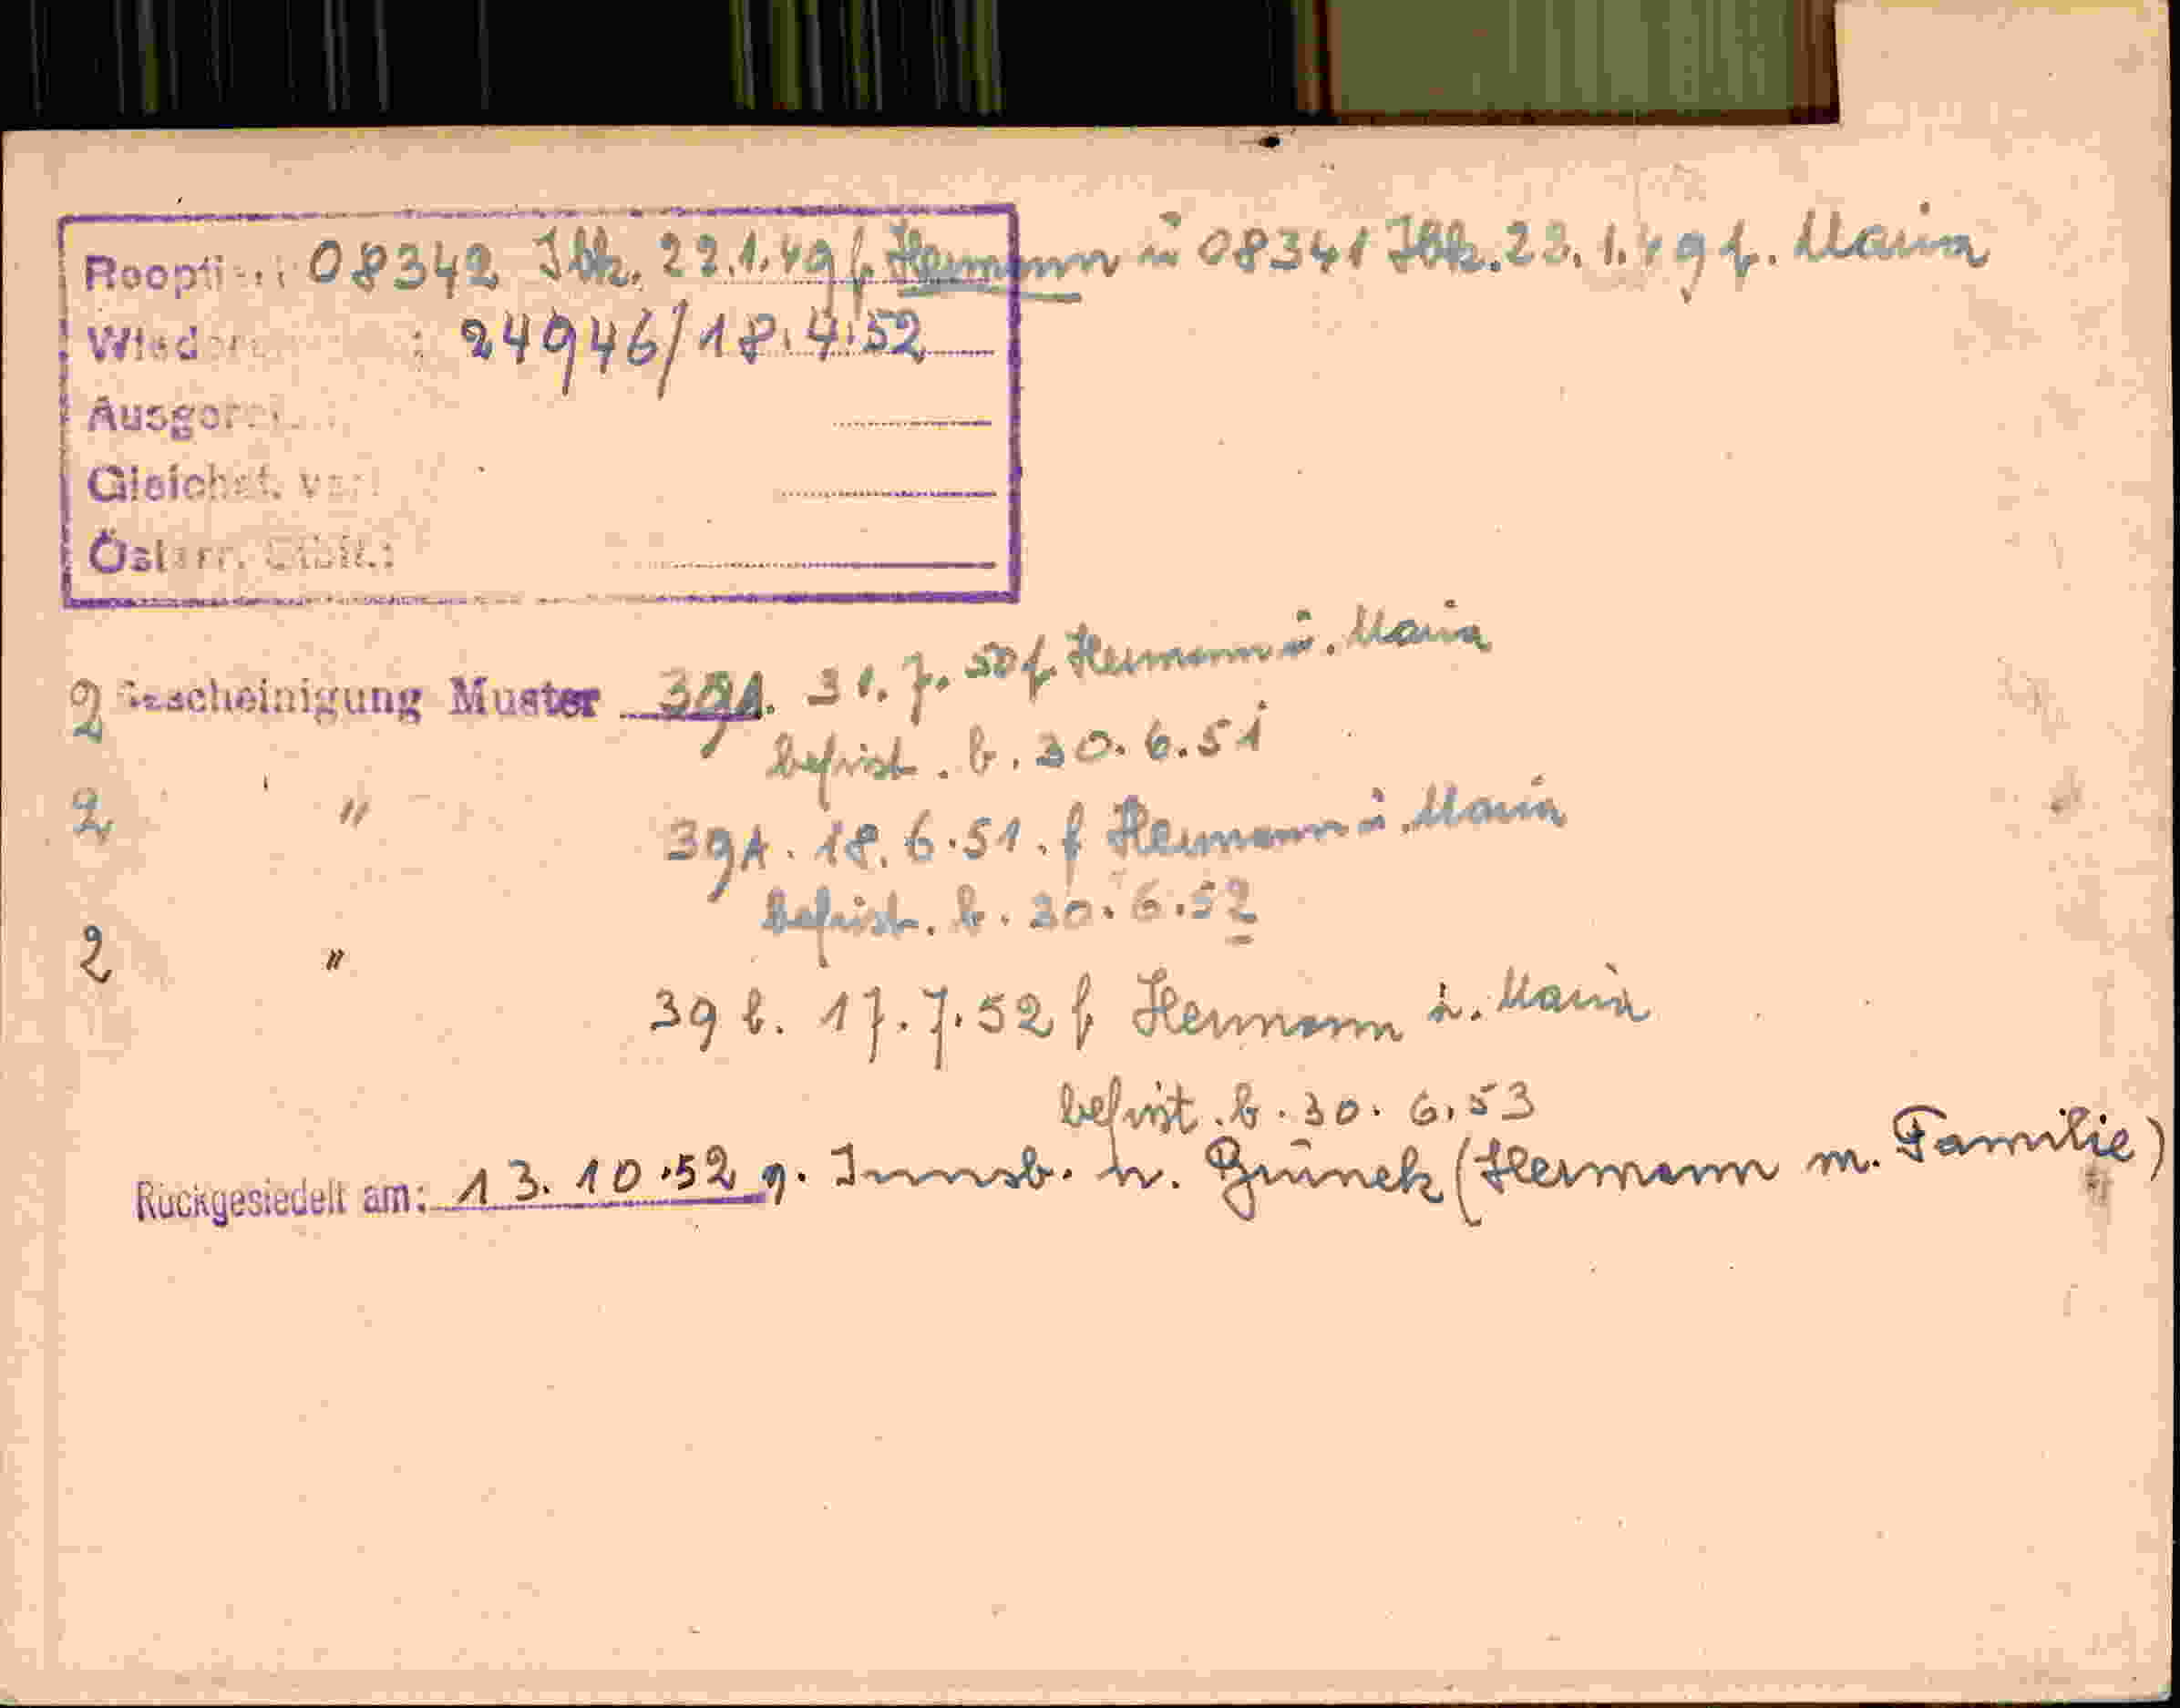 Reopti 08342 Ibk. 22.1.49 f. Hermann u 08341 Ibk. 23.1.49 f. Maria
Wieder : 24946/18.4.52
Ausger
Gleichst. v
Österr. Stbft.:
2 Bescheinigung Muster 39A. 31.7.50 f. Hermann u. Maria
befrist. b. 30.6.51
2 " 39A. 18.6.51. f Hermann u. Maria
befrist. b. 30.6.52
2 "
39 b. 17.7.52 f Hermann u. Maria
befrist. b. 30.6.53
Rückgesiedelt am: 13.10.52 g. Innsb. n. (Hermann m. Familie)